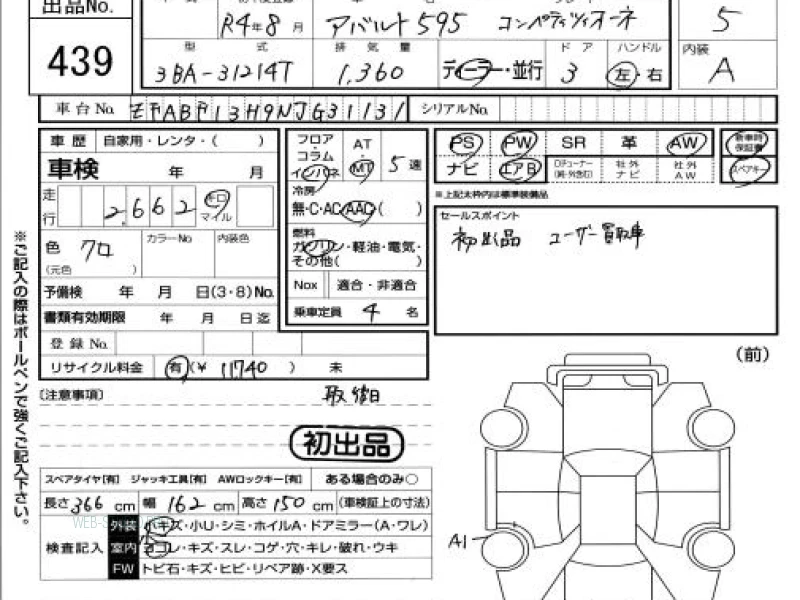 出品No.
439
R4年8月
アバルト595 コンペティツィオーネ
5
型 式 排 気 量 ドア ハンドル 内装
3BA-31214T 1,360 ディーラー・並行 3 左・右 A
車台No. ZFABF13H9NJG31131 シリアルNo.
車歴 自家用・レンタ・( )
車検 年 月
走行 2,662 キロ マイル
色 クロ カラーNo 内装色
(元色 )
予備検 年 月 日(3・8)No.
書類有効期限 年 月 日迄
登録No.
リサイクル料金 有(¥ 11740 ) 未
フロア コラム インパネ AT MT 5速
冷房
無・C・AC・AAC( )
燃料
ガソリン・軽油・電気・その他( )
Nox 適合・非適合
乗車定員 4 名
PS PW SR 革 AW 新車時保証書
ナビ エアB 社外ナビ 社外AW スペアキー
※上記太枠内は標準装備品
セールスポイント
初出品 ユーザー買取車
(前)
〔注意事項〕
初出品
スペアタイヤ【有】 ジャッキ工具【有】 AWロックキー【有】 ある場合のみ○
長さ366cm 幅162cm 高さ150cm (車検証上の寸法)
WEB-
検査記入
外装 小キズ・小U・シミ・ホイルA・ドアミラー(A・ワレ)
室内 ヨゴレ・キズ・スレ・コゲ・穴・キレ・破れ・ウキ
FW トビ石・キズ・ヒビ・リペア跡・X要ス
A1
※ご記入の際はボールペンで強くご記入下さい。